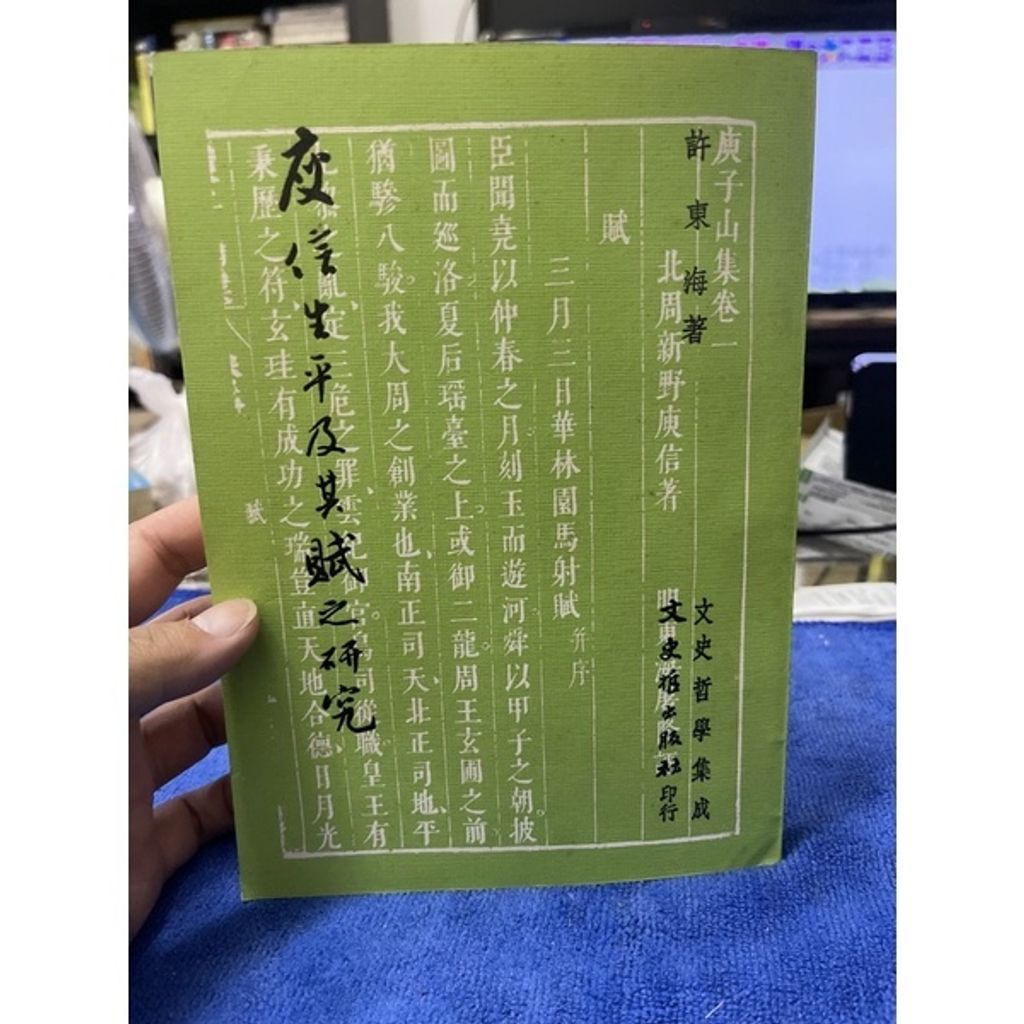 庾信生平及其賦之研究
許東海著
文史哲學集成
文史哲出版社印行
庾子山集卷一
北周新野庾信著
賦
三月三日華林園馬射賦 并序
臣聞堯以仲春之月刻玉而遊河舜以甲子之朝披
圖而巡洛夏后瑶臺之上或御二龍周王玄圃之前
猶驂八駿我大周之創業也南正司天北正司地平
定三危之罪雲紀御官鳥司從職皇王有
秉歷之符玄珪有成功之瑞豈直天地合德日月光
賦